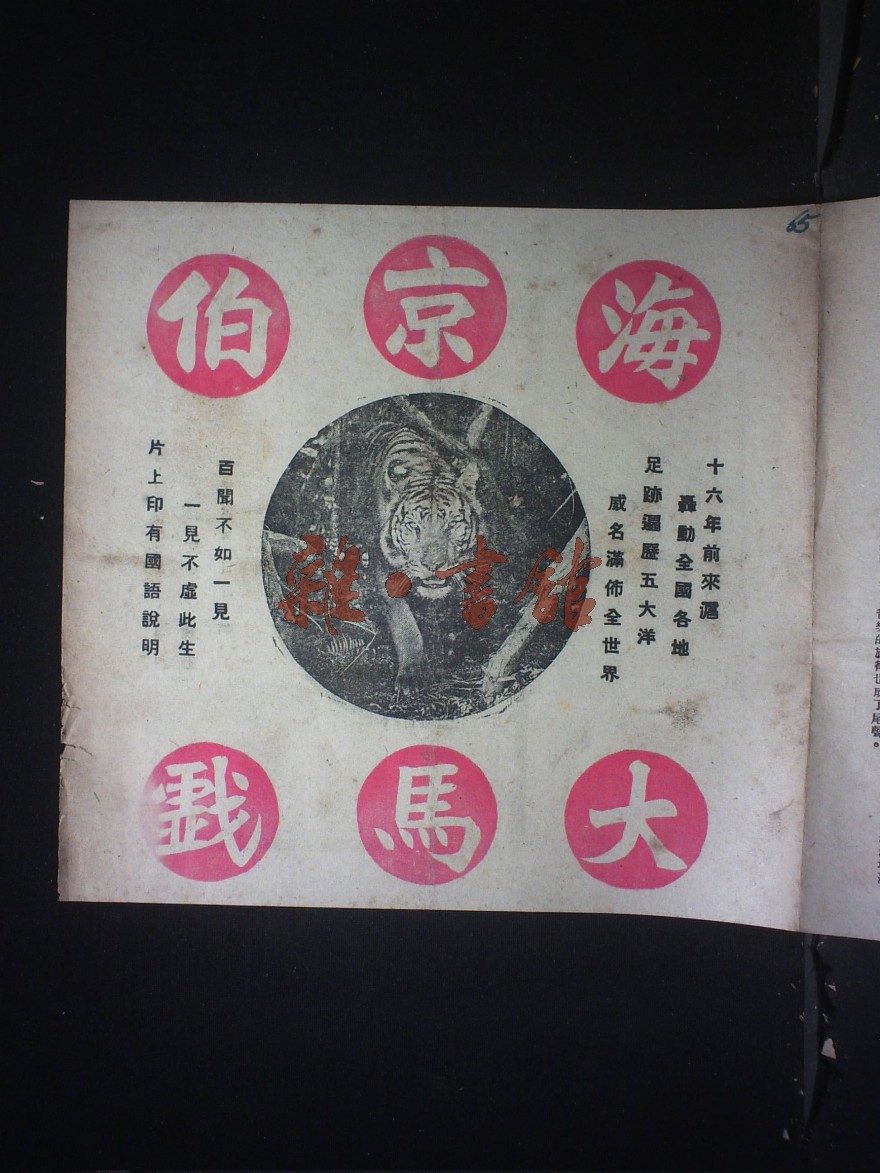 65
海京伯
十六年前來滬
轟動全國各地
足跡遍歷五大洋
威名滿佈全世界
百聞不如一見
一見不虛此生
片上印有國語說明
大馬戲
雜·書館